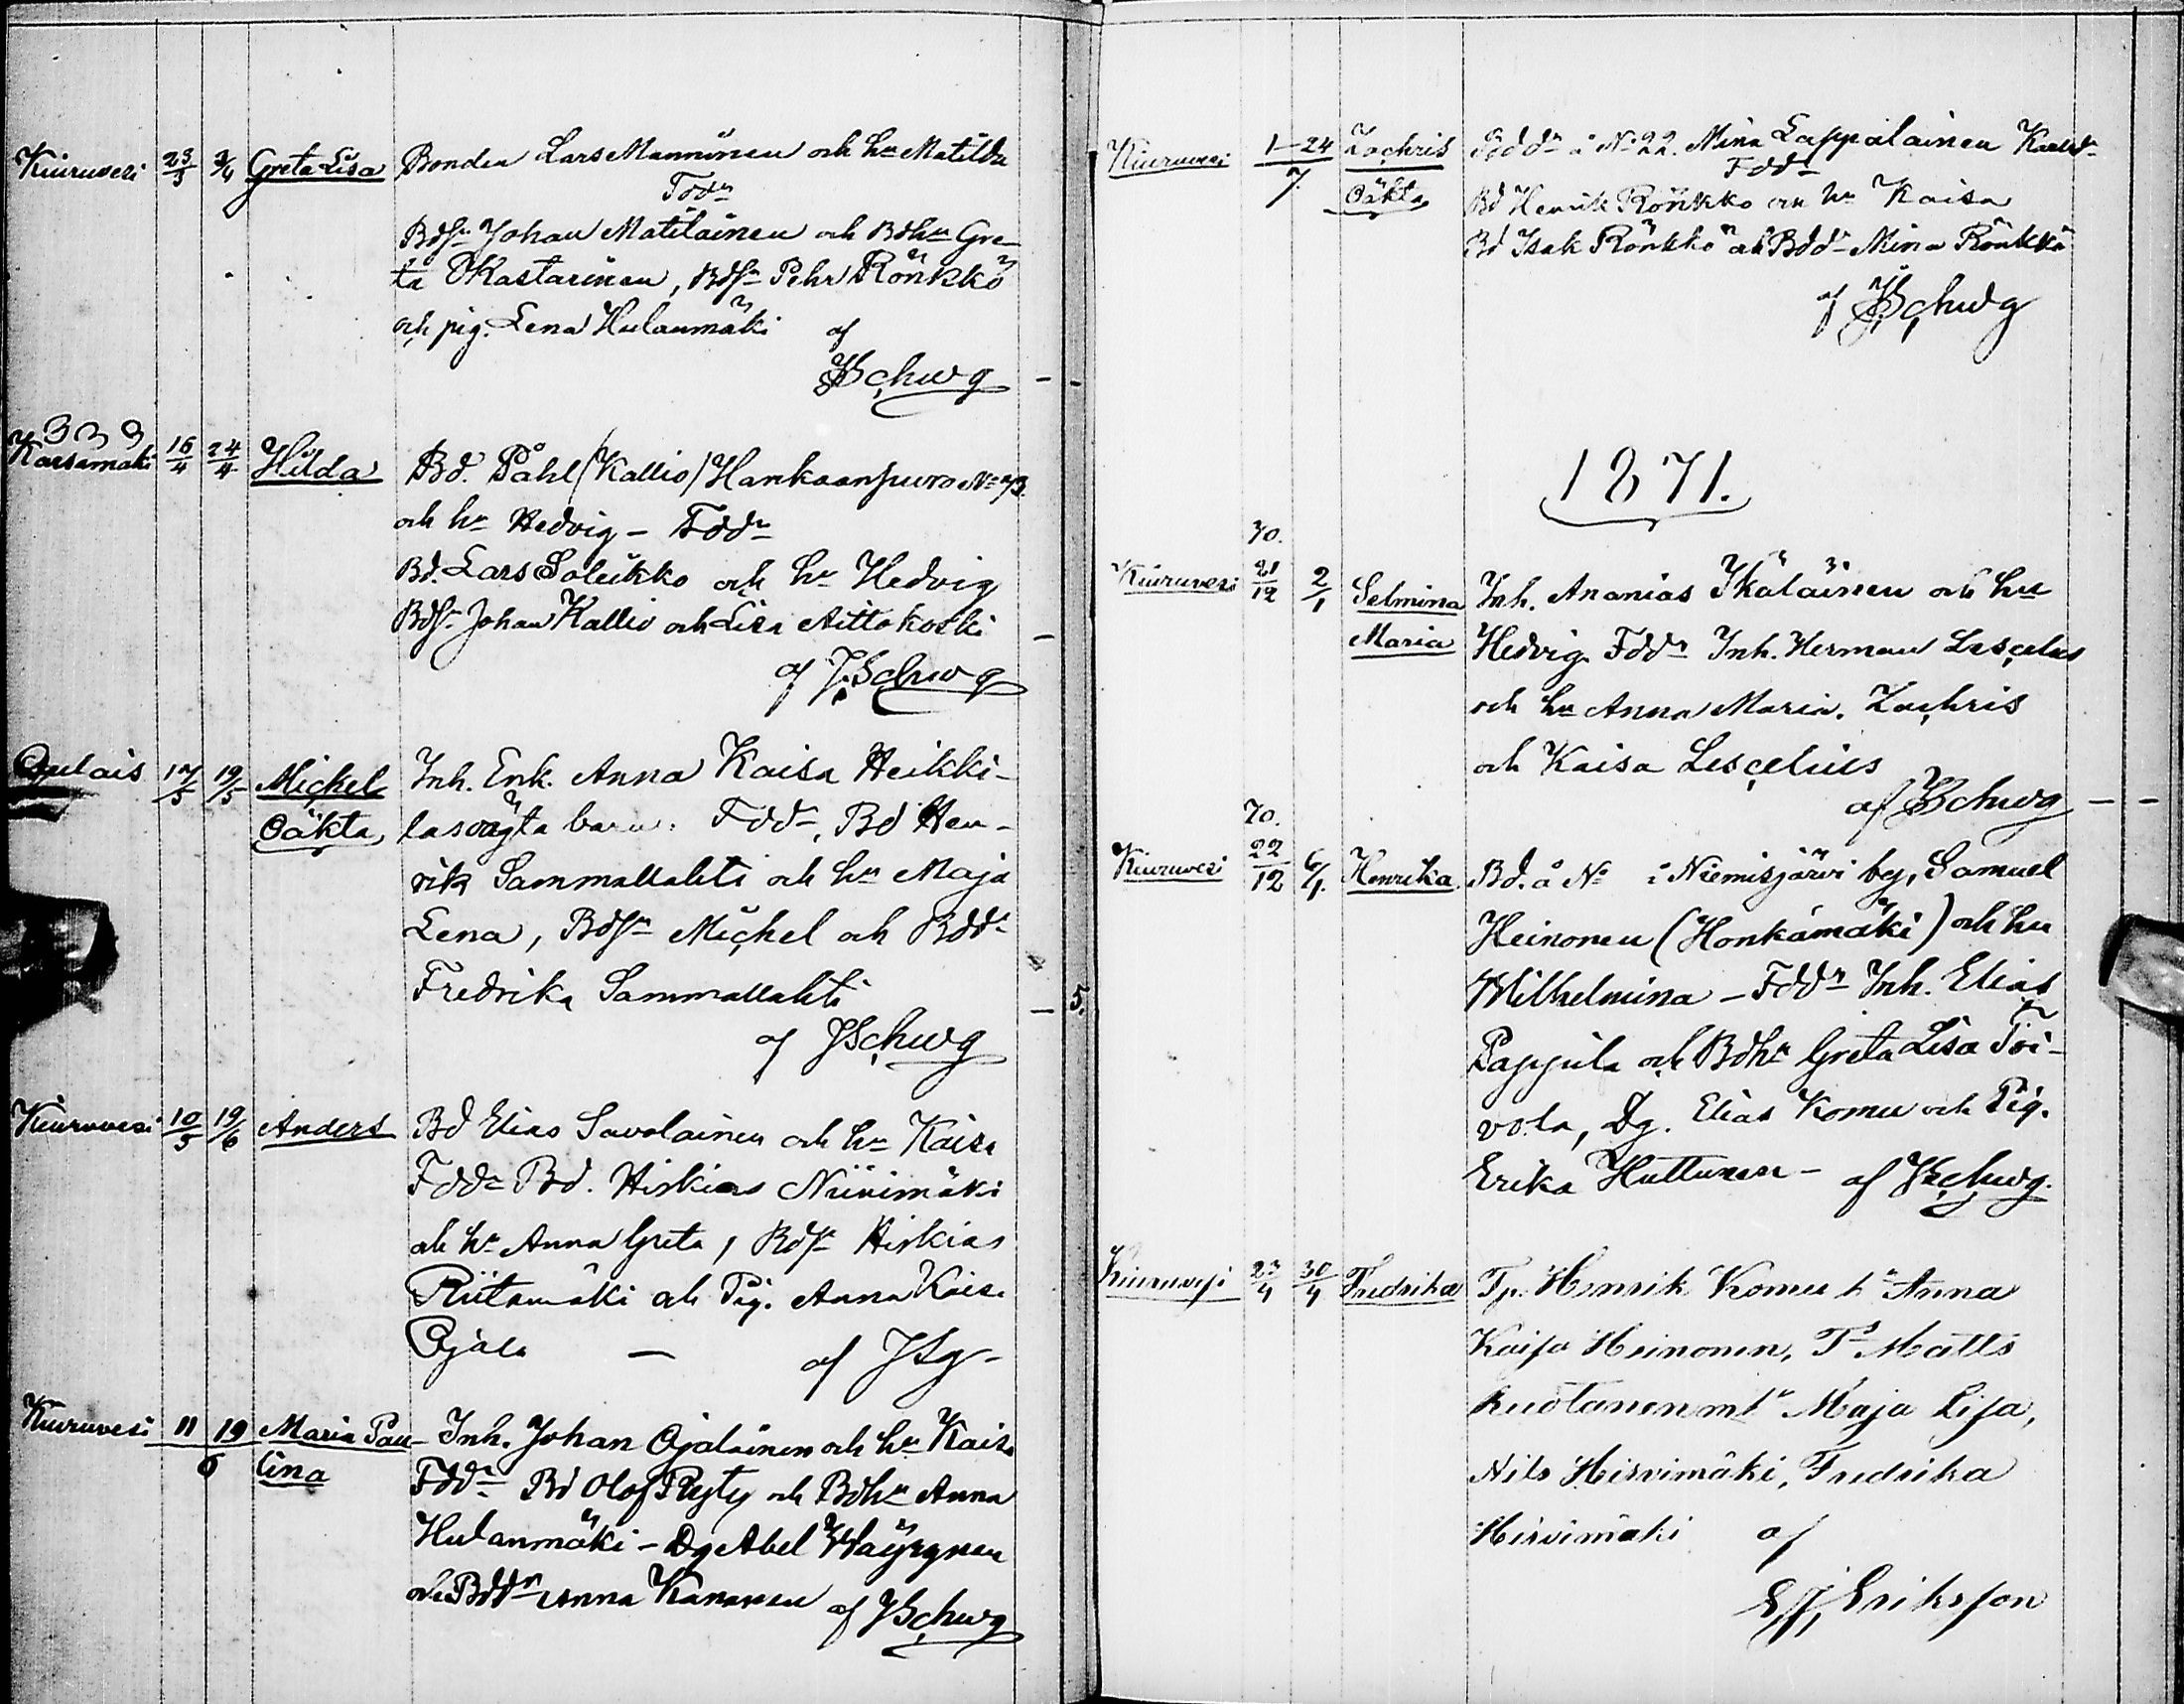 Kiuruvesi 23/3 3/4 Greta Lisa Bonden Lars Manninen och hu Matilda
Fddr
Bdsn Johan Matilainen och Bdhu Gre-
ta Kastarinen, Bdsn Pehr Rönkkö
och pig. Lena Hulanmäki af
JSchwg
Karsamäki 16/4 24/4 Hilda Bd. Påhl (Kallio) Hankaanpuro No 73.
och hu Hedvig – Fddr
Bd. Lars Soleikko och hu Hedvig
Bdsn Johan Kallio och Lisa Aittokoski
af JSchwg
Oulais 17/5 19/5 Michel Inh. Enk. Anna Kaisa Heikki-
Oäkta las oägta barn. Fddr, Bd Hen-
rik Sammallahti och hu Maja
Lena, Bdsn Michel och Bddr
Fredrika Sammallahti
5.
af JSchwg
Kiuruvesi 10/5 19/6 Anders Bd Elias Savolainen och hu Kaisa
Fddr Bd. Hiskias Niinimäki
och hu Anna Greta, Bdsn Hiskias
Riitamäki och Pig. Anna Kaisa
Ojala – af JSg
Kiuruvesi 11 19 Maria Pau- Inh. Johan Ojalainen och hu Kaisa
6 lina Fddr Bd Olof Ryty och Bdhu Anna
Hulanmäki – Dg Abel Wäyrynen
och Bddr Anna Kananen af JSchwg
Kiuruvesi 1–24 Zachris Bddr å No 22. Mina Lappalainen
7. Oäkta Fddr
Bd Henrik Rönkkö och hu Kaisa
Bd Isak Rönkkö och Bddr Mina Rönkkö
af JSchwg
1871.
70.
Kiuruvesi 21/12 2/1 Selmina Inh. Ananias Ikäläinen och hu
Maria Hedvig Fddr Inh. Herman Lescelius
och hu Anna Maria. Zachris
och Kaisa Lescelius
af JSchwg
70.
Kiuruvesi 22/12 6/1. Henrika Bd. å No i Niemisjärvi by, Samuel
Heinonen (Honkamäki) och hu
Wilhelmina – Fddr Inh. Elias
Pappila och Bdhu Greta Lisa Toi-
vola, Dg. Elias Komu och Pig.
Erika Huttunen – af JSchwg.
Kiuruvesi 23/4 30/4 Fredrika Tp. Henrik Komu h Anna
Kaisa Heinonen, Matts
Ruotanen Maja Lisa,
Nils Hirvimäki, Fredrika
Hirvimäki af
Eriksson